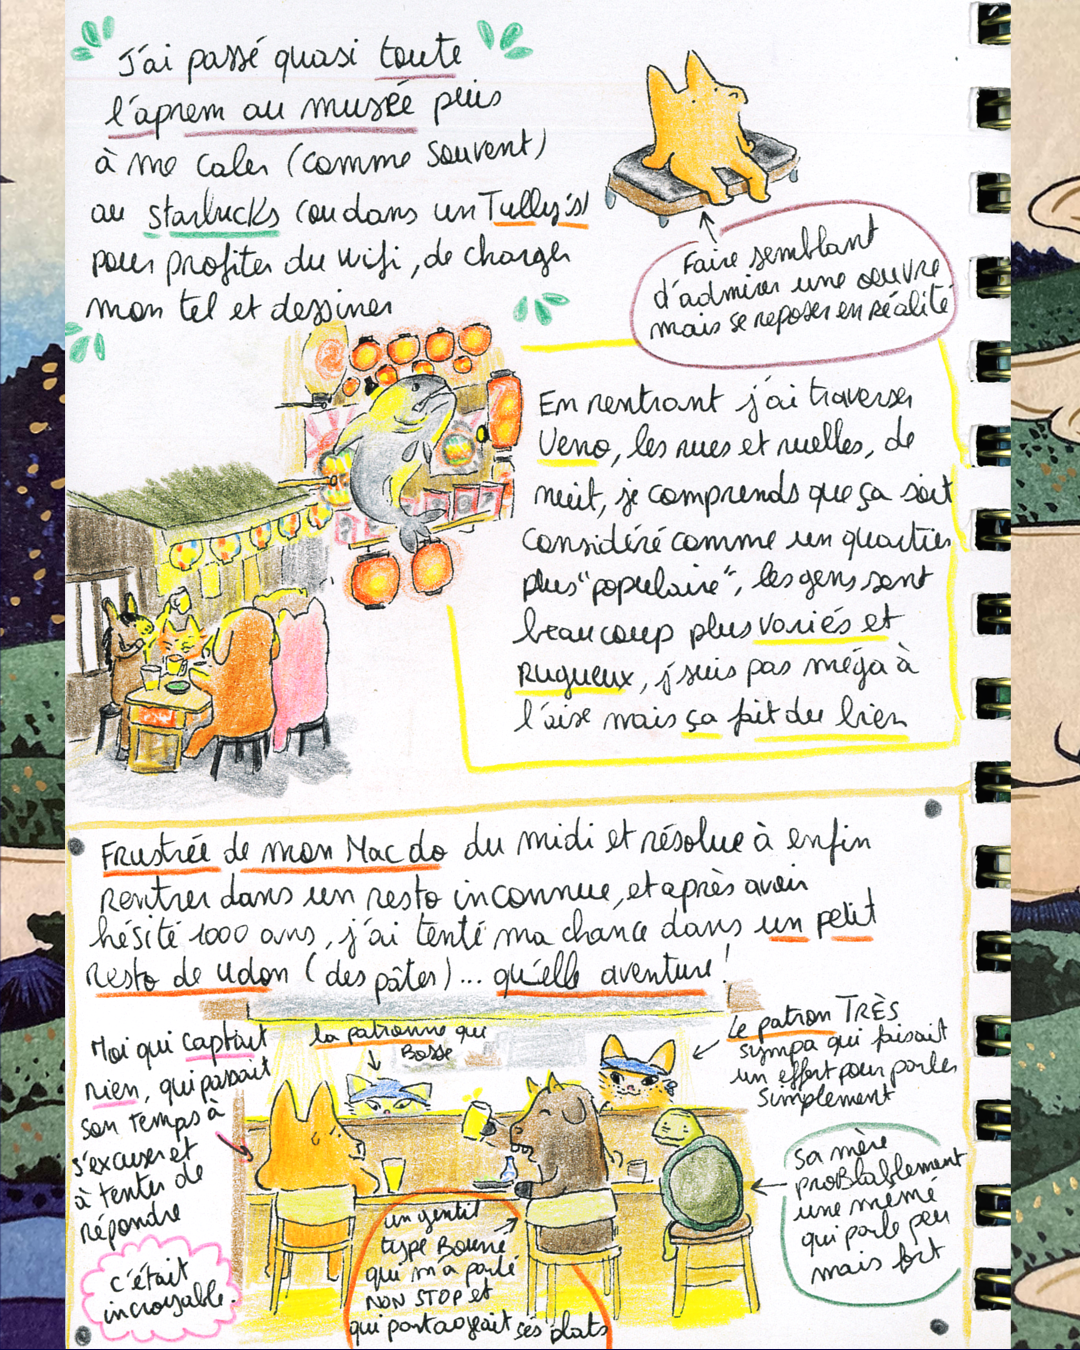 J'ai passé quasi toute
l'aprem au musée puis
à me caler (comme souvent)
au starbucks (ou dans un Tully's)
pour profiter du wifi, de charger
mon tel et dessiner
Faire semblant
d'admirer une oeuvre
mais se reposer en réalité
En rentrant j'ai traverser
Ueno, les rues et ruelles, de
nuit, je comprends que ça soit
considéré comme un quartier
plus "populaire", les gens sont
beaucoup plus variés et
Rugueux, j'suis pas méga à
l'aise mais ça fait du bien
Frustrée de mon Mac do du midi et résolue à enfin
rentrer dans un resto inconnue, et après avoir
hésité 1000 ans, j'ai tenté ma chance dans un petit
resto de udon (des pâtes)... qu'elle aventure!
Moi qui captait
rien, qui passait
son temps à
s'excuser et
à tenter de
répondre
c'était
incroyable.
la patronne qui
Bosse
le patron TRÈS
sympa qui faisait
un effort pour parler
simplement
un gentil
type Bourré
qui m'a parlé
NON STOP et
qui partageait ses plats
sa mère
proBlablement
une mémé
qui parle peu
mais fort